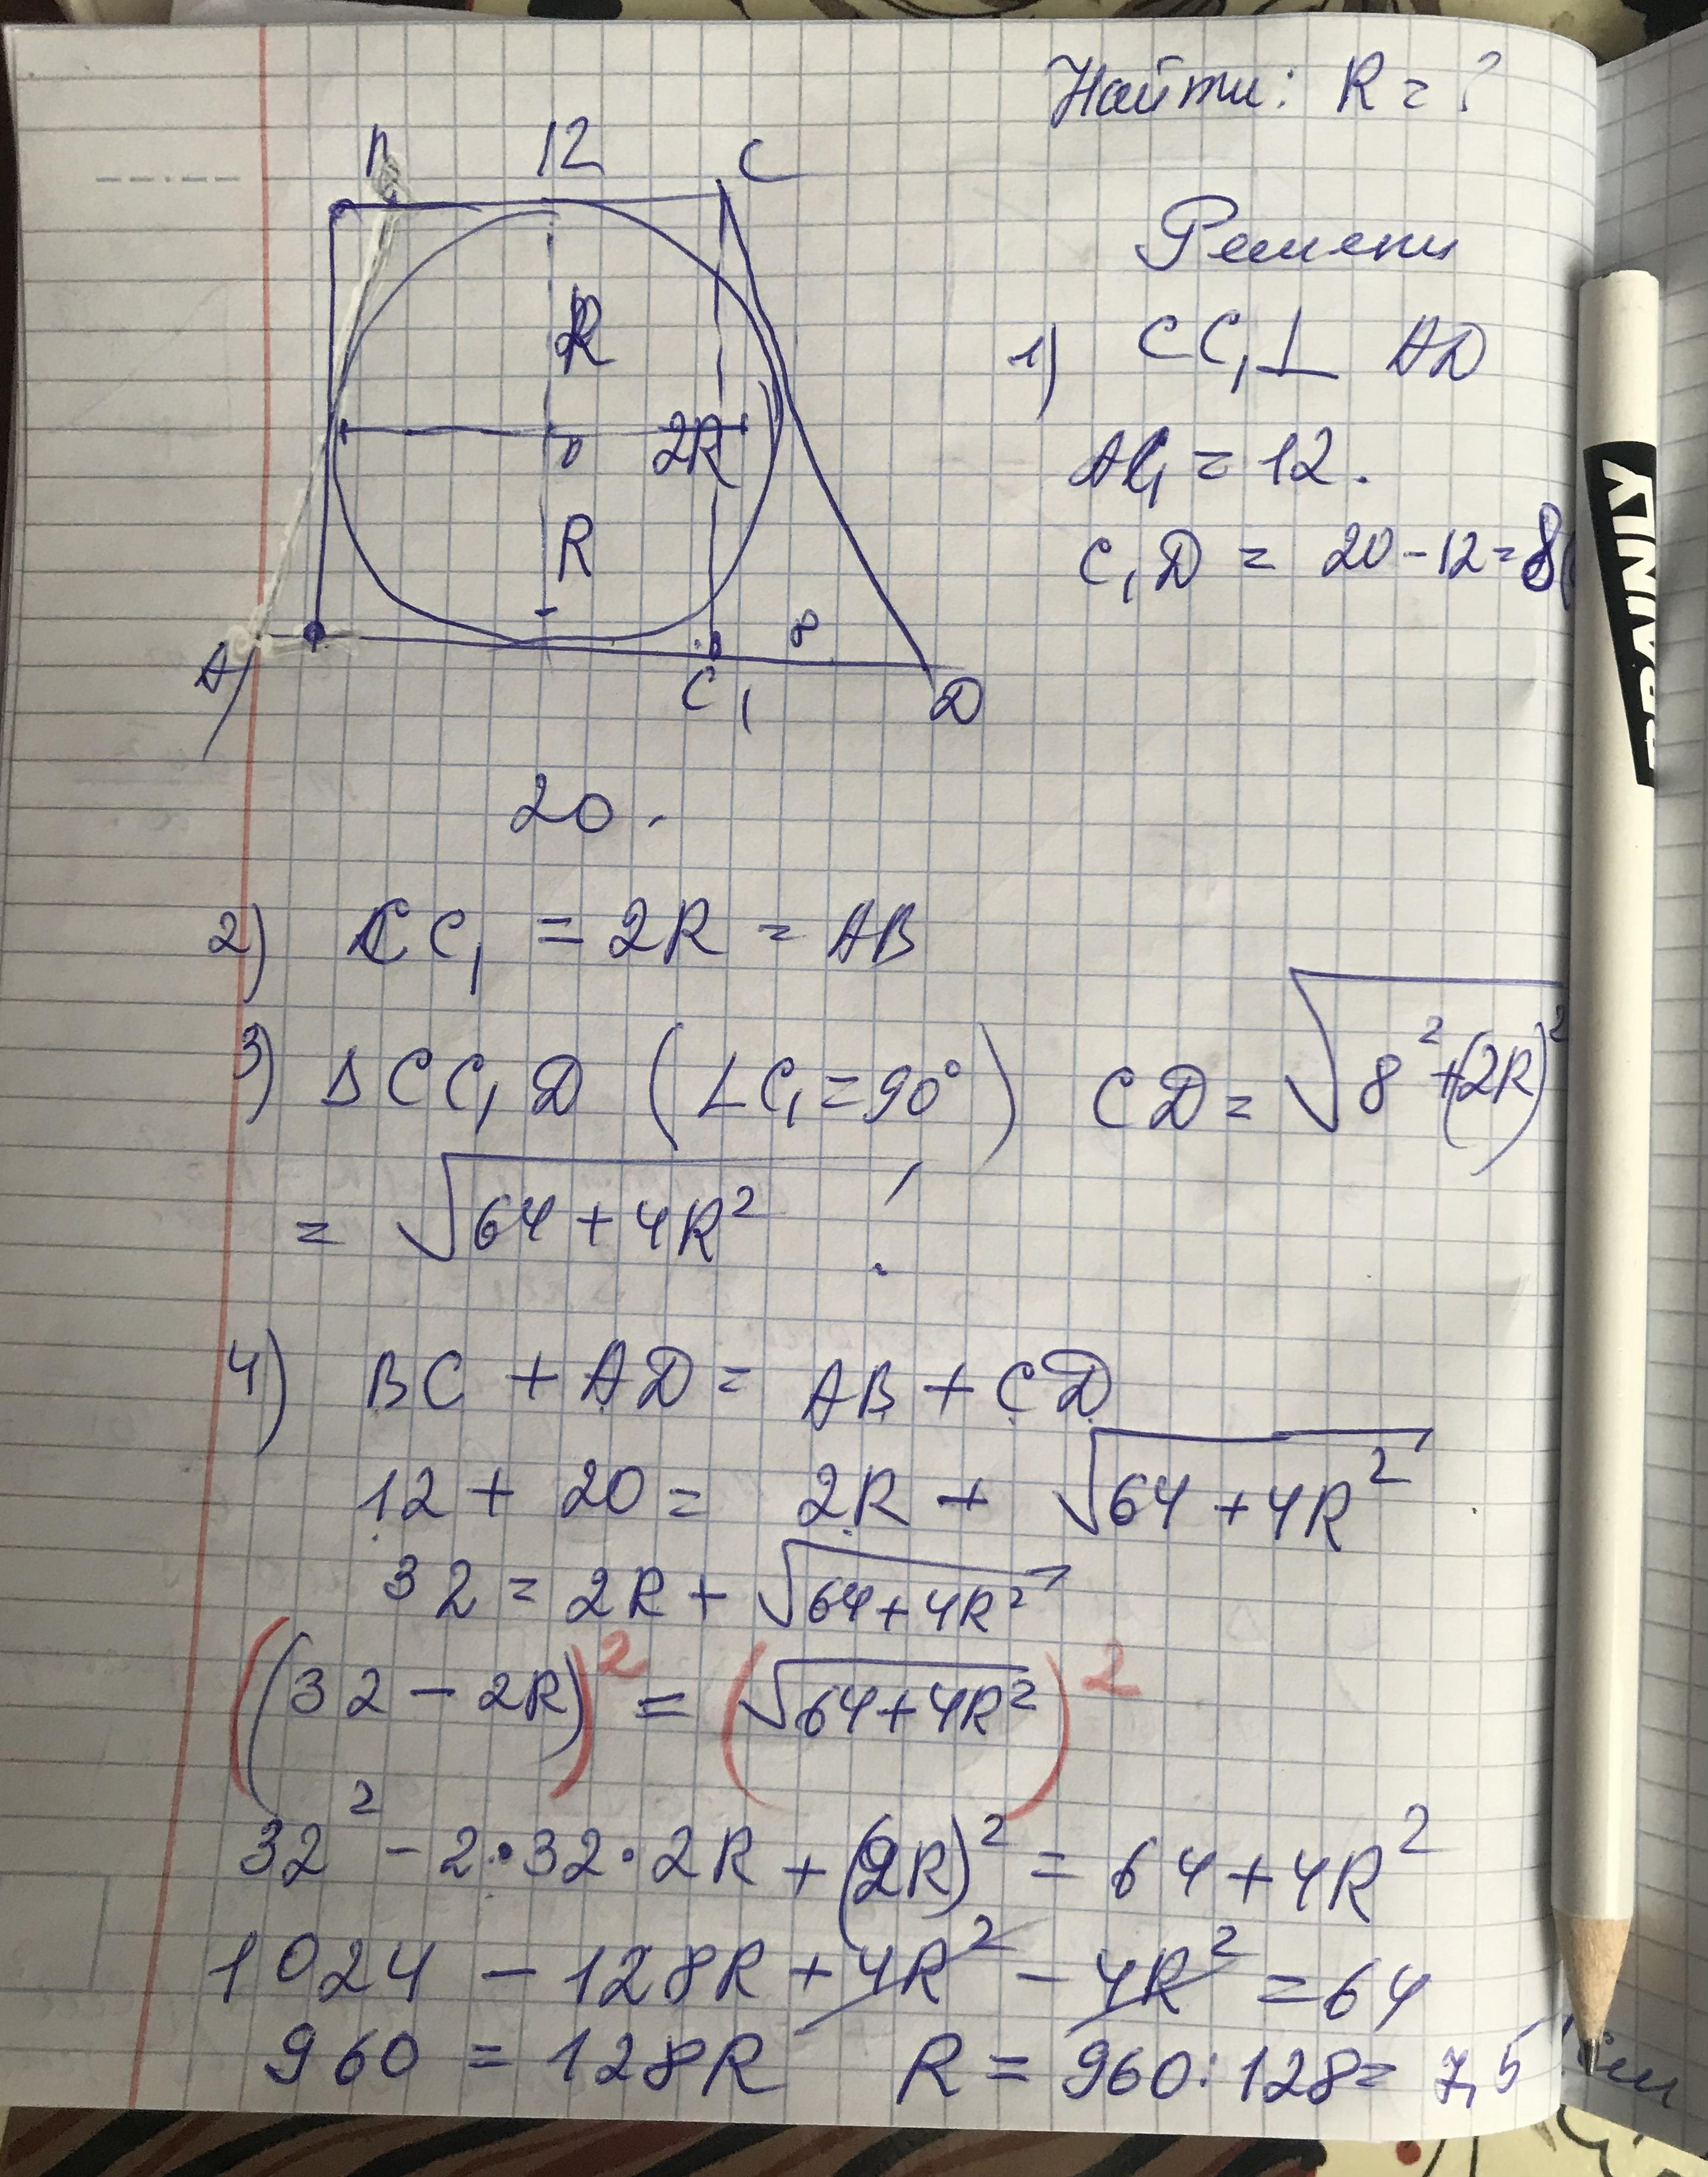 Найти: R = ?
12 C
Решени
R
1) CC₁ ⊥ AD
2R
0
AC₁ = 12.
R
C₁D = 20 - 12 = 8
8
A
C₁
D
20.
2) CC₁ = 2R = AB
3) Δ CC₁D (∠C₁ = 90°) CD = √(8² + (2R)²)
= √(64 + 4R²)
4) BC + AD = AB + CD
12 + 20 = 2R + √(64 + 4R²)
32 = 2R + √(64 + 4R²)
((32 - 2R))² = (√(64 + 4R²))²
32² - 2·32·2R + (2R)² = 64 + 4R²
1024 - 128R + 4R² - 4R² = 64
960 = 128R R = 960 : 128 = 7,5 см
BRAINLY